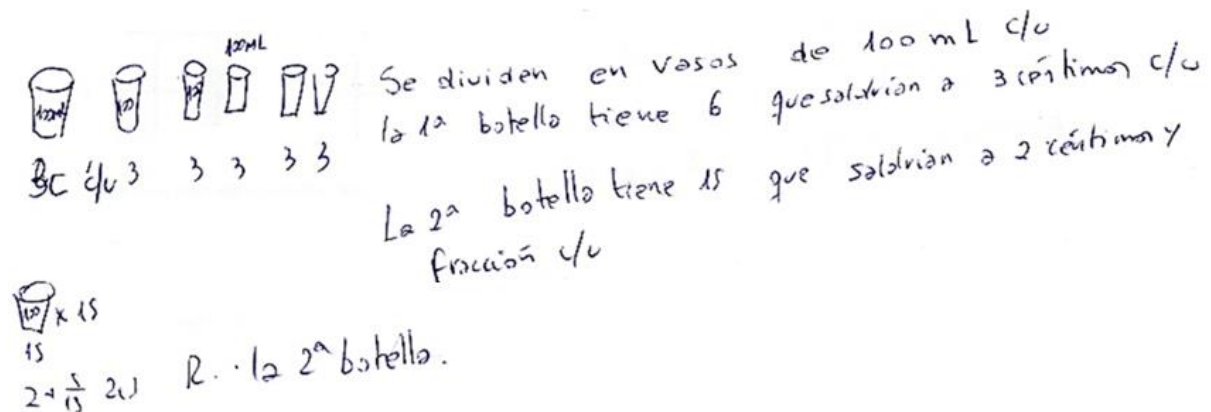 100mL
100mL 100 100
3C c/u 3 3 3 3 3
Se dividen en vasos de 100 mL c/u
la 1ª botella tiene 6 que saldrían a 3 céntimos c/u
La 2ª botella tiene 15 que saldrían a 2 céntimos y
fracción c/u
100 x 15
15
2+ 5/15
R.. la 2ª botella.